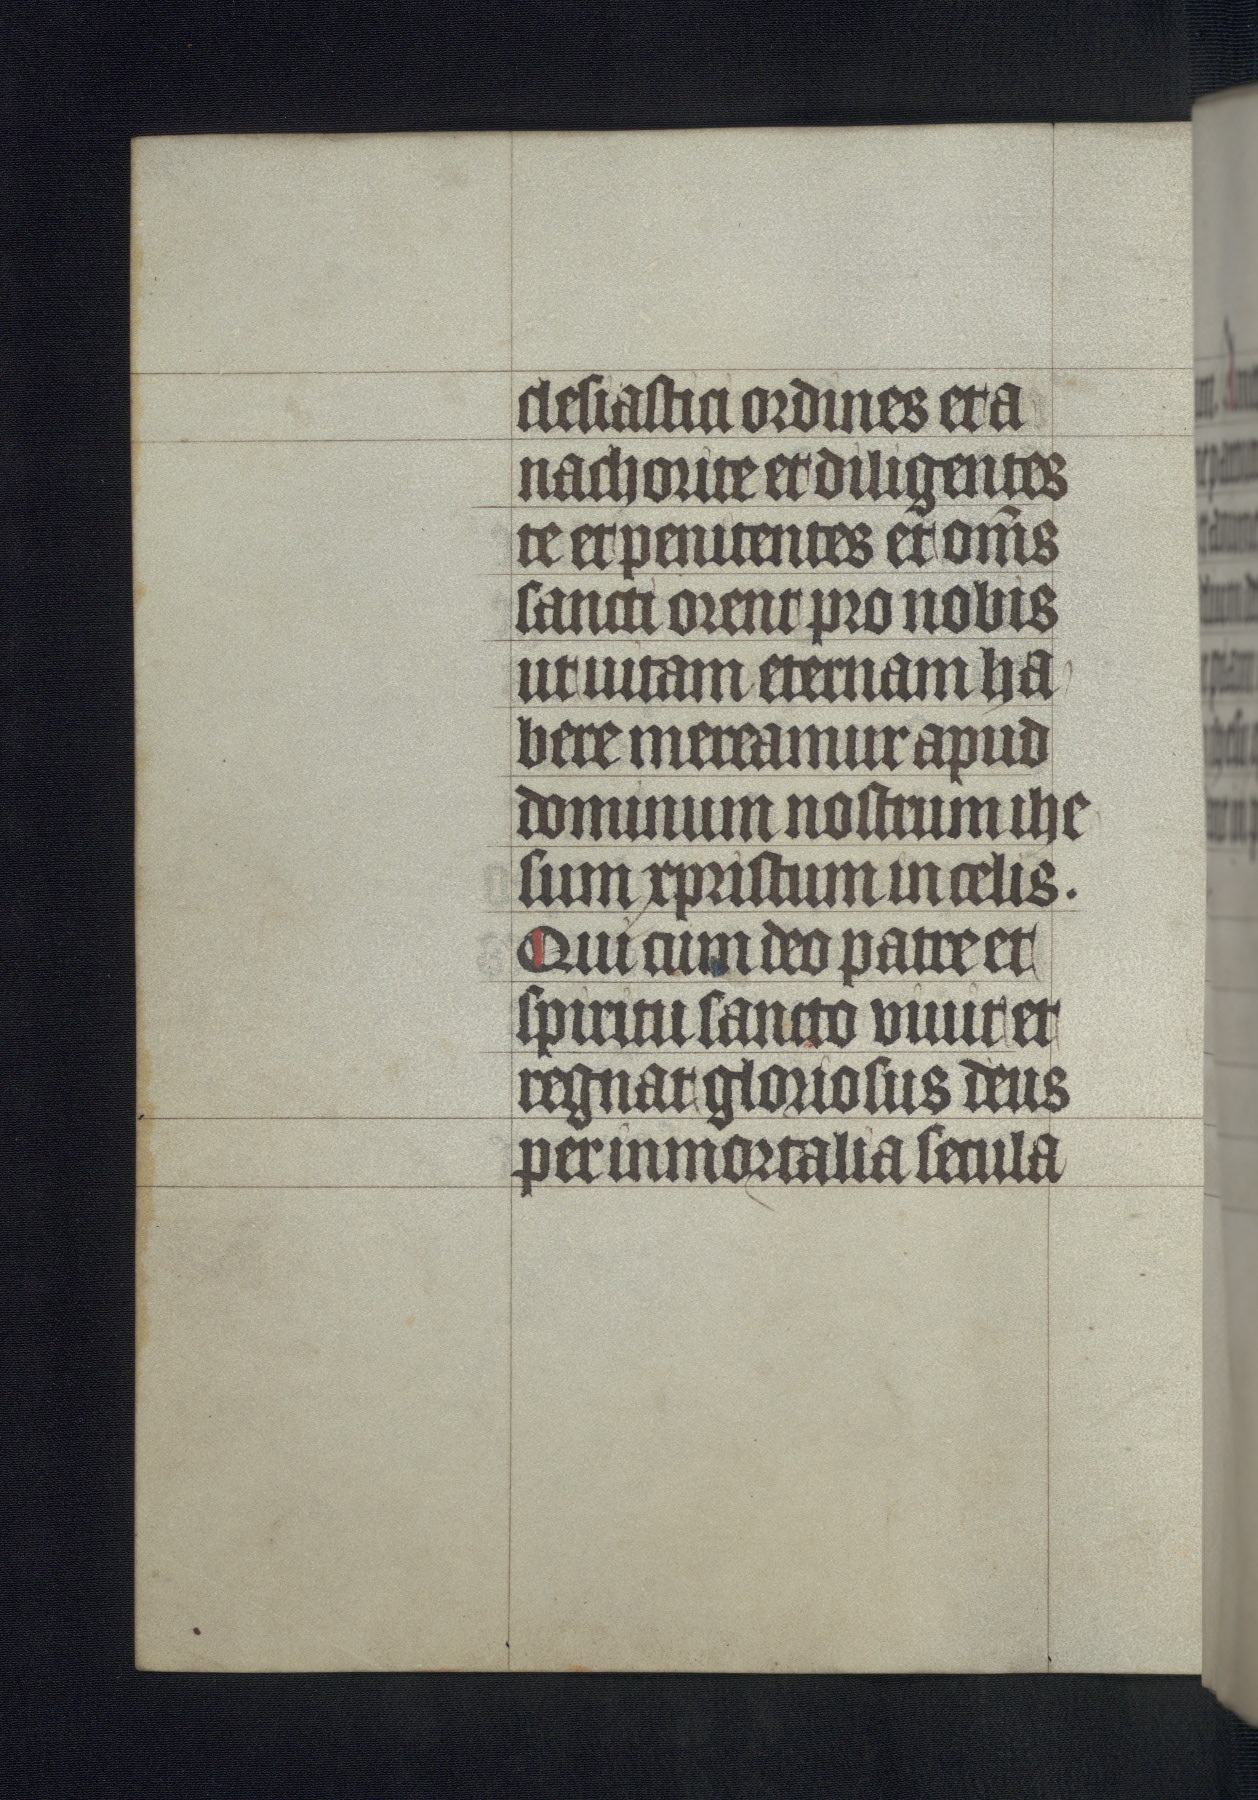 clesiastici ordines et a
nachorite et diligentes
te et penitentes et om̅s
sancti orent pro nobis
ut uitam eternam ha
bere mereamur apud
dominum nostrum ihe
sum xpristum in celis.
Qui cum deo patre et
spiritu sancto viuit et
regnat gloriosus deus
per inmortalia secula